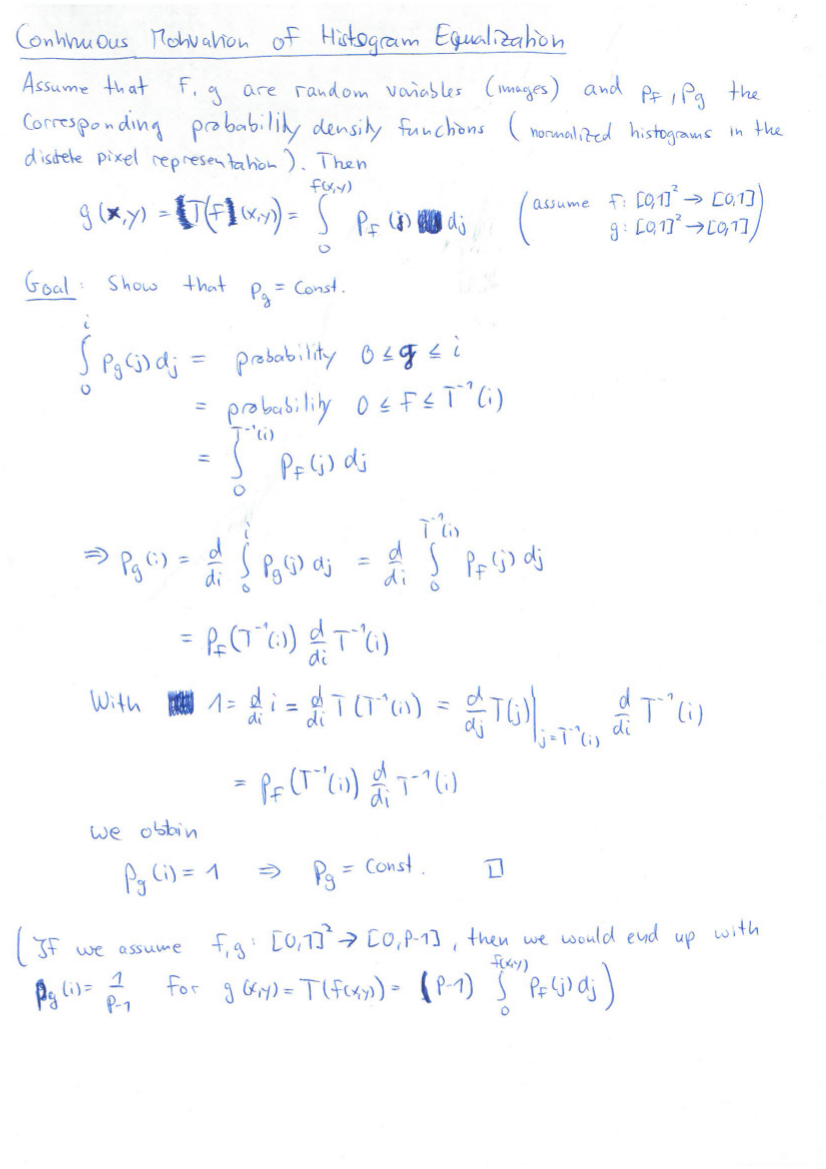 Continuous Motivation of Histogram Equalization
Assume that f, g are random variables (images) and p_f, p_g the
corresponding probability density functions (normalized histograms in the
discrete pixel representation). Then
g(x,y) = [T(f)](x,y) = ∫_0^{f(x,y)} p_f(j) dj (assume f: [0,1]² → [0,1]
g: [0,1]² → [0,1])
Goal: Show that p_g = const.
∫_0^i p_g(j) dj = probability 0 ≤ g ≤ i
= probability 0 ≤ f ≤ T⁻¹(i)
= ∫_0^{T⁻¹(i)} p_f(j) dj
⇒ p_g(i) = d/di ∫_0^i p_g(j) dj = d/di ∫_0^{T⁻¹(i)} p_f(j) dj
= p_f(T⁻¹(i)) d/di T⁻¹(i)
With 1 = d/di i = d/di T(T⁻¹(i)) = d/dj T(j)|_{j=T⁻¹(i)} d/di T⁻¹(i)
= p_f(T⁻¹(i)) d/di T⁻¹(i)
we obtain
p_g(i) = 1 ⇒ p_g = const. □
(If we assume f,g: [0,1]² → [0,P-1], then we would end up with
p_g(i) = 1/(P-1) for g(x,y) = T(f(x,y)) = (P-1) ∫_0^{f(x,y)} p_f(j) dj)